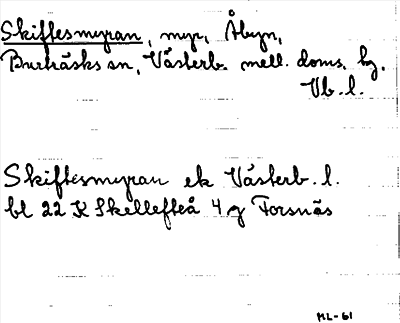 Skiftesmyran, myr, Åbyn,
Burträsks sn, Västerb. mell. doms. bg.
Vb. l.
Skiftesmyran ek Västerb. l.
bl 22 K Skellefteå 4 g Forsnäs
ML-61